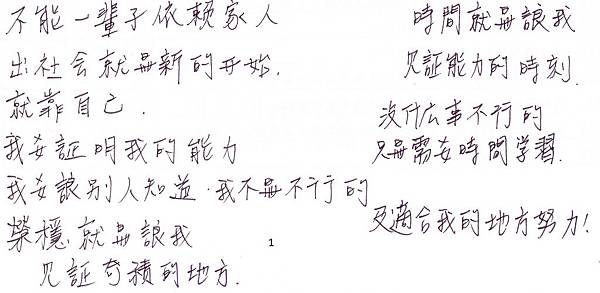 不能一輩子依賴家人
出社会就是新的开始.
就靠自己.
我要証明我的能力
我要讓別人知道.我不是不行的
榮穩就是讓我
见証奇積的地方.
1
時間就是讓我
见証能力的時刻.
沒什么事不行的
只是需要時間学習.
更適合我的地方努力!